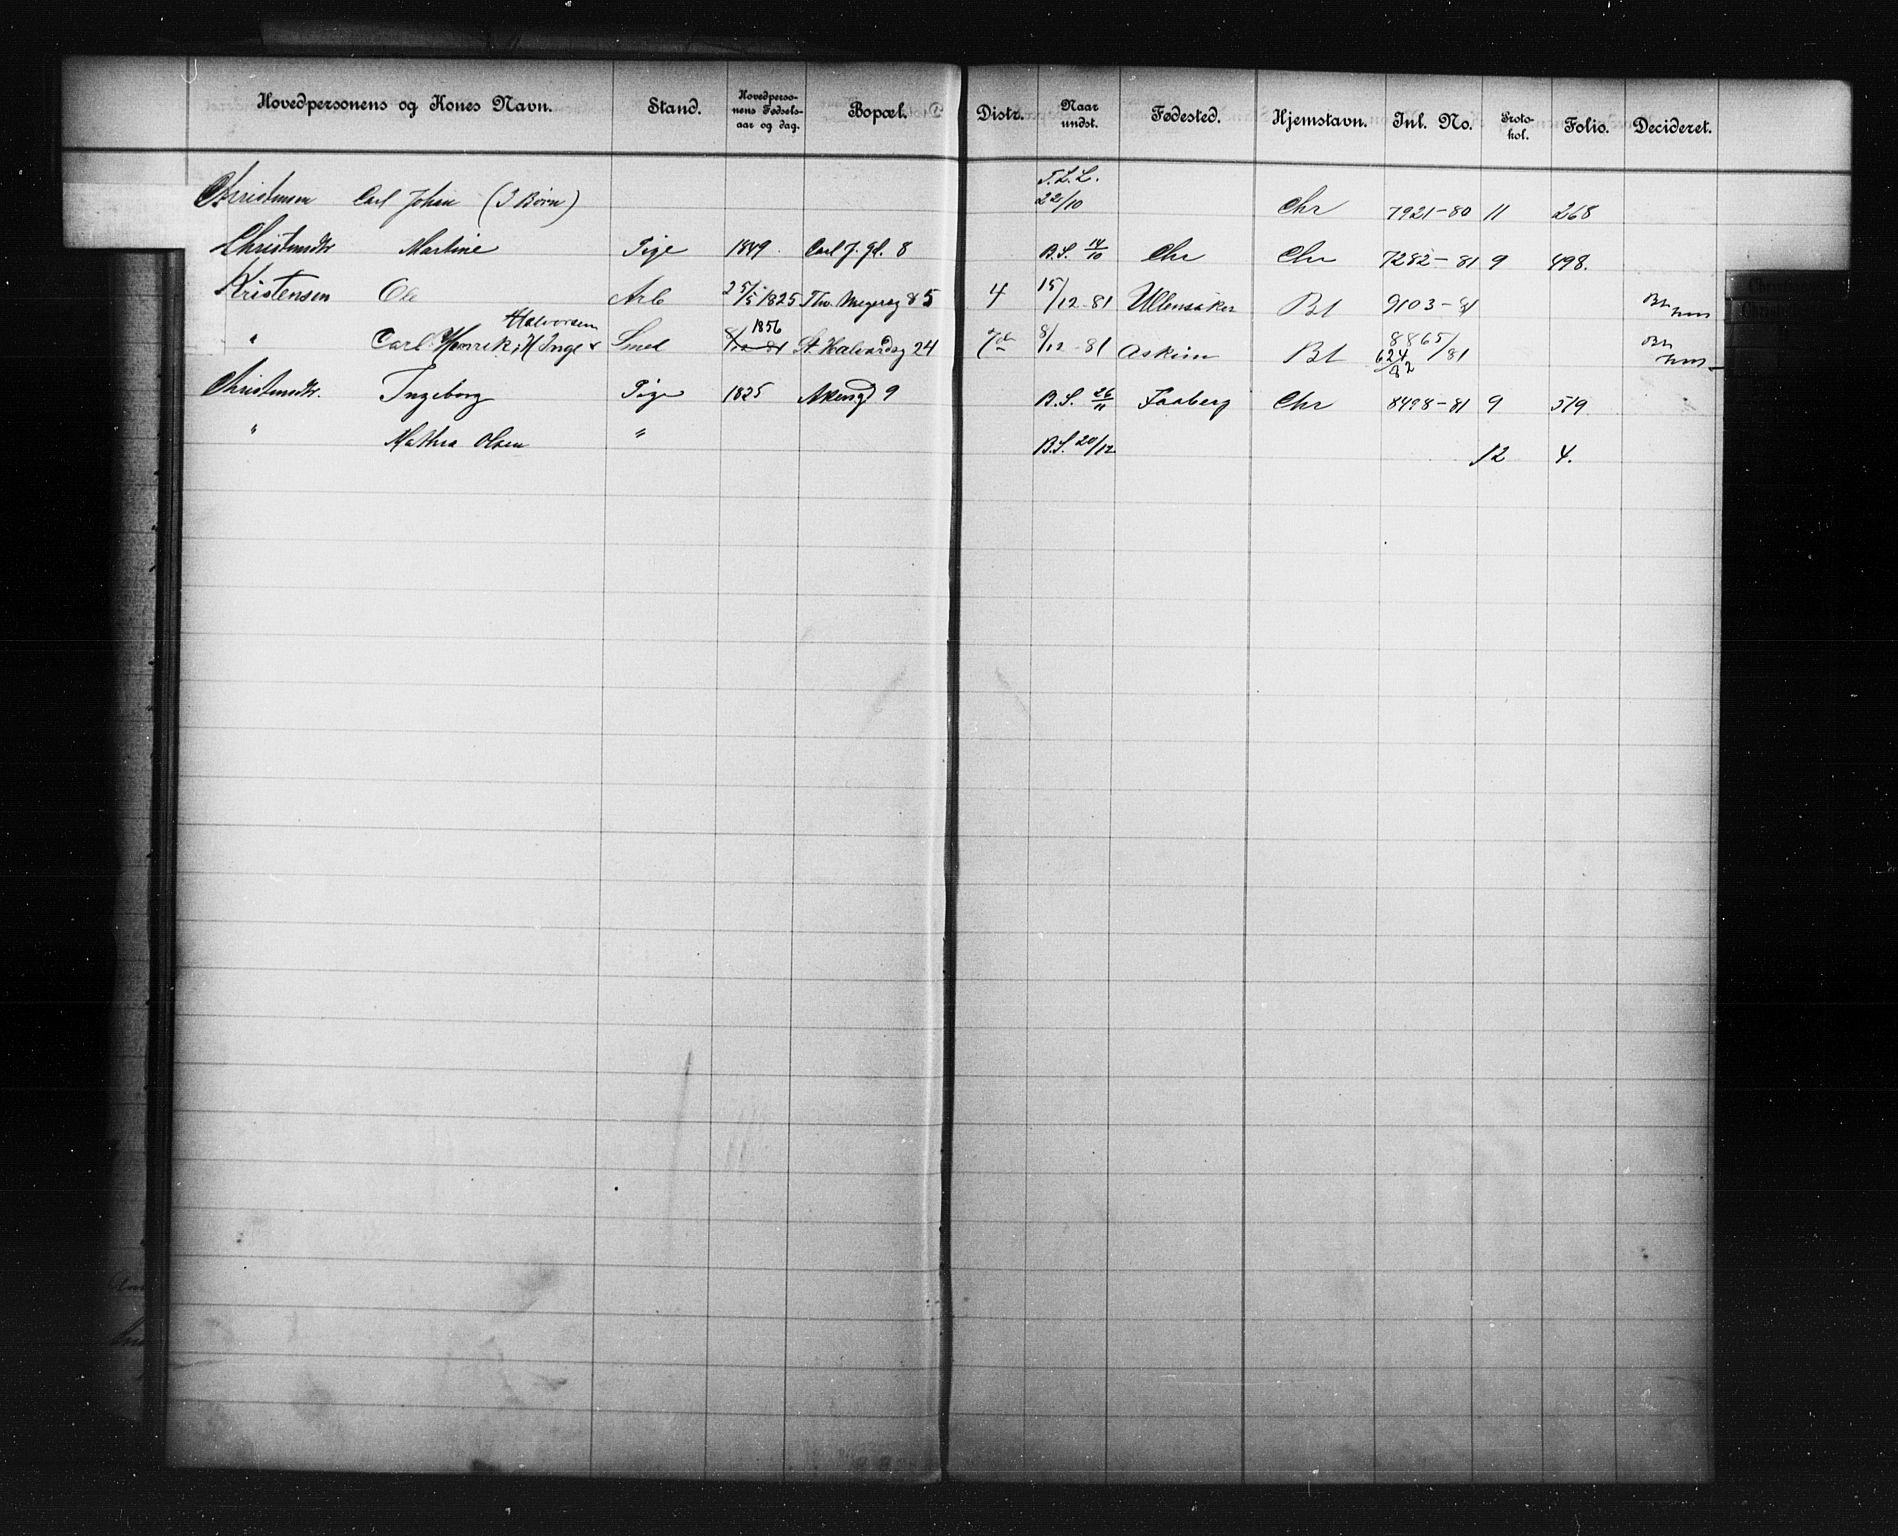 Hovedpersonens og Kones Navn. Stand. Hovedpersonens Fødselsaar og dag. Bopæl. Distr. Naar undst. Fødested. Hjemstavn. Inl. No. Protokol. Folio. Decideret.
Christensen Carl Johan (3 Børn) F.L.L. 22/10 Chr 7921-80 11 268
Christensdtr Martine Pige 1849. Carl J. gd. 8 B.S. 14/10 Chr Chr 7282-81 9 498.
Kristensen Ole Arb 25/5 1825 Thv. Meyersg 85 4 15/12-81 Ullensaker Bt 9103-81
" Carl Henrik, H Inge Halvorsen Smed 1856 St. Halvardsg 24 7de 8/12-81 Askim Bt 8865/81 624/82
Christensdtr. Ingeborg Pige 1825 Akersgd 9 B.S. 26/11 Faaberg Chr 8498-81 9 519
" Mathea Olsen " B.S. 20/12 12 4.